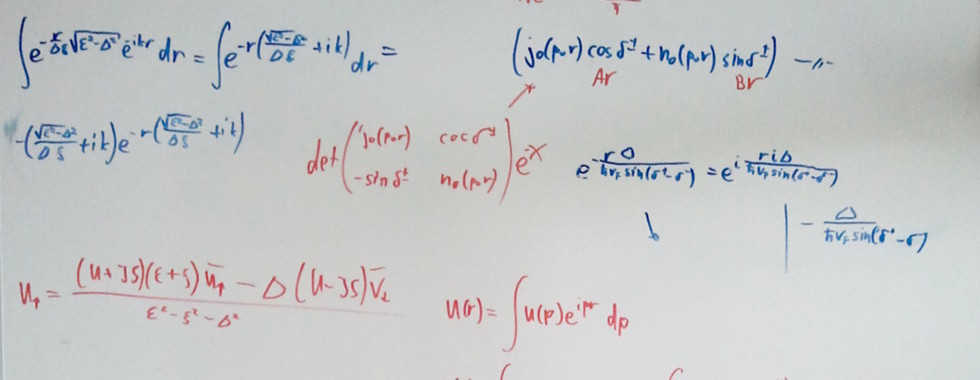 ∫e^{-r/Δξ √(ε²-Δ²)} e^{-ikr} dr = ∫e^{-r(√(ε²-Δ²)/Δξ + ik)} dr =
(j₀(p₀r) cos δ⁺ + n₀(p₀r) sin δ⁺) -//-
Ar Br
-(√(ε²-Δ²)/Δξ + ik) e^{-r(√(ε²-Δ²)/Δξ + ik)}
det (j₀(p₀r) cos δ⁺
-sin δ⁺ n₀(p₀r)) e^{-x}
e^{-rΔ/ħv_F sin(δ⁺-δ⁻)} = e^{i riΔ/ħv_F sin(δ⁺-δ⁻)}
| - Δ/ħv_F sin(δ⁺-δ⁻)
u↑ = (U+JS)(ε+ξ)ū↑ - Δ(U-JS)v̄↓ / ε²-ξ²-Δ²
u(r) = ∫u(p)e^{ipr} dp